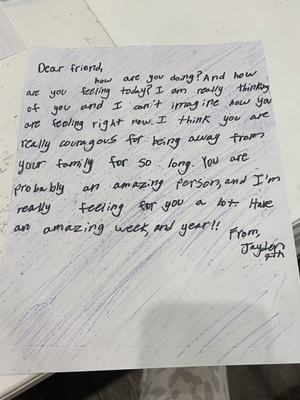 Dear friend,
how are you doing? And how
are you feeling today? I am really thinking
of you and I can't imagine how you
are feeling right now. I think you are
really couragous for being away from
your family for so long. You are
probably an amazing person, and I'm
really feeling for you a lot. Have
an amazing week, and year!!
From,
Jayden